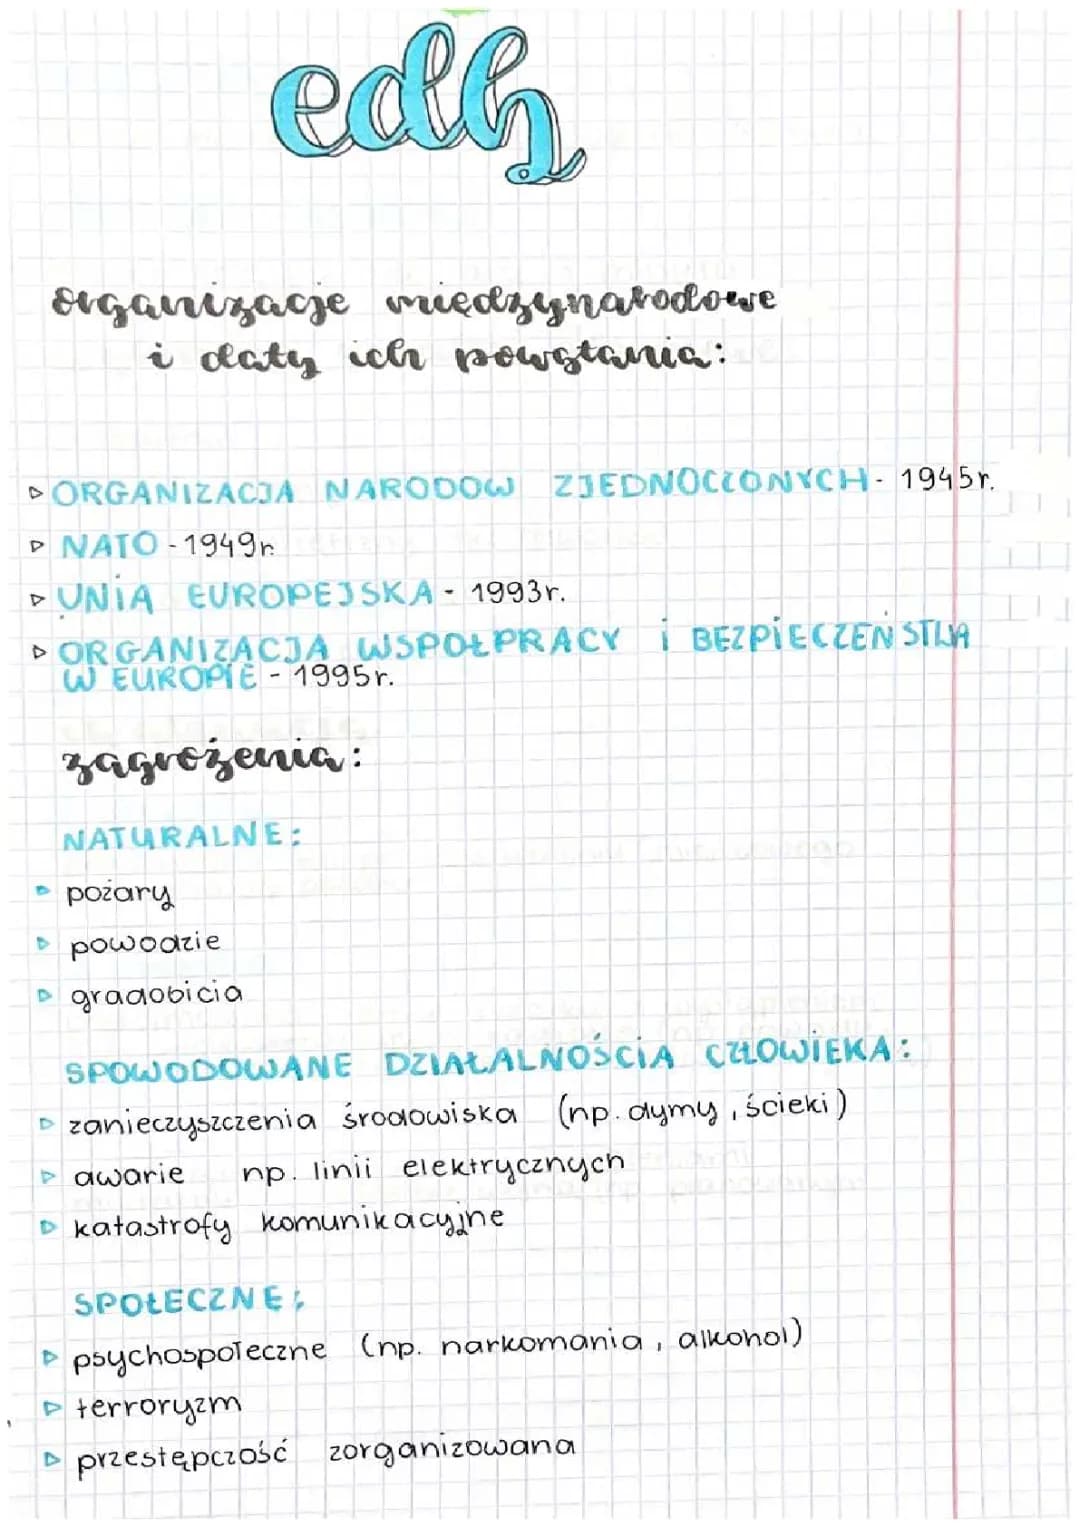 edb
organizacje międzynarodowe
i daty ich powstania:
▹ ORGANIZACJA NARODOW ZJEDNOCZONYCH - 1945r.
▹ NATO - 1949r.
▹ UNIA EUROPEJSKA - 1993r.
▹ ORGANIZACJA WSPOŁPRACY i BEZPIECZEŃSTWA
W EUROPIE - 1995r.
zagrożenia:
NATURALNE:
▹ pożary
▹ powodzie
▹ gradobicia
SPOWODOWANE DZIAŁALNOŚCIĄ CZŁOWIEKA:
▹ zanieczyszczenia środowiska (np. dymy, ścieki)
▹ awarie np. linii elektrycznych
▹ katastrofy komunikacyjne
SPOŁECZNE:
▹ psychospołeczne (np. narkomania, alkohol)
▹ terroryzm
▹ przestępczość zorganizowana